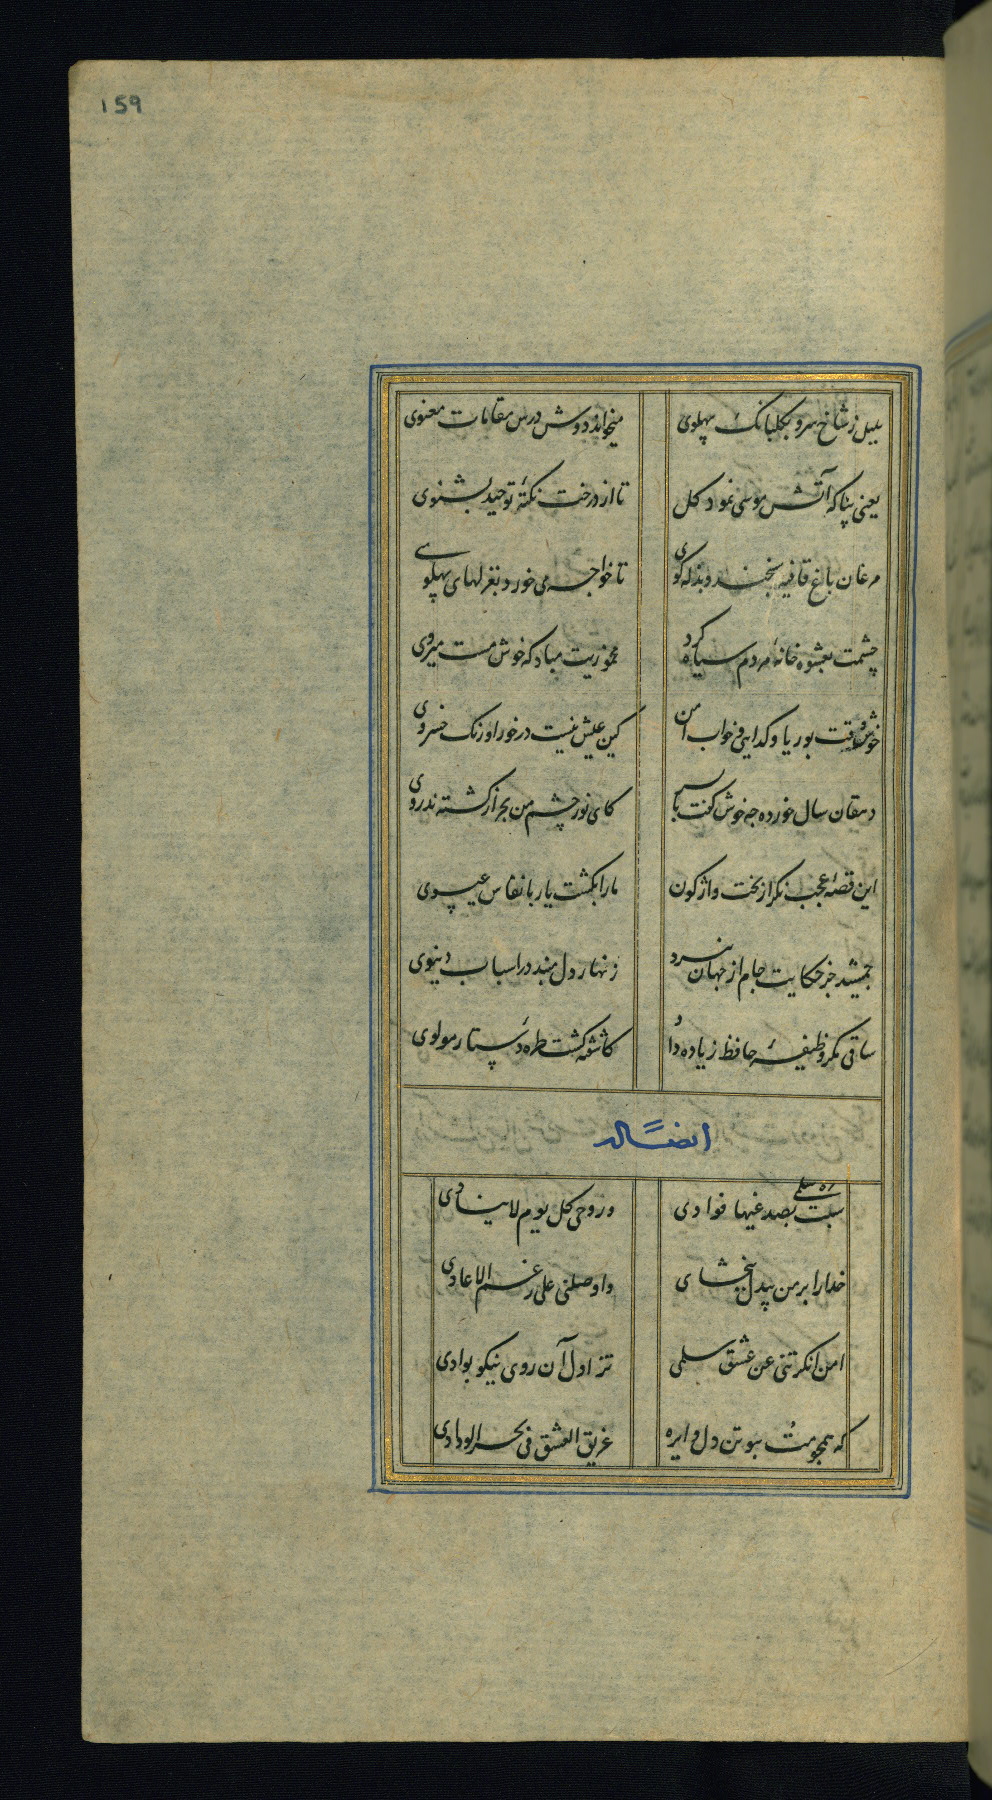 159
بلبل ز شاخ سرو بکلبانک پهلوی
میخواند دوش درس مقامات معنوی
یعنی بیا که آتش موسی نمود کل
تا از درخت نکتهٔ توحید بشنوی
مرغان باغ قافیه سنجند و بذله کوی
تا خواجه می خورد بغزلهای پهلوی
چشمت بعشوه خانهٔ مردم سیاه کرد
مخموریت مباد که خوش مست میروی
خوش وقت بوریا و کدایی و خواب امن
کین عیش نیست در خور اورنک خسروی
دهقان سال خورده چه خوش کفت با پسر
کای نور چشم من بجز از کشته ندروی
این قصهٔ عجب نکر از بخت واژکون
ما را بکشت یار بانفاس عیسوی
جمشید جز حکایت جام از جهان نبرد
زنهار دل مبند در اسباب دنیوی
ساقی مکر وظیفهٔ حافظ زیاده داد
کاشفته کشت طرهٔ دستار مولوی
ایضاً له
سبت سلمی بصدغیها فوادی
و روحی کل یوم لاینادی
خدارا بر من بیدل ببخشای
و اوصلنی علی رغم الاعادی
امن انکرتنی عن عشق سلمی
تز اول آن روی نیکو بوادی
که همچومت ببوتن دل و ایره
غریق العشق فی بحر الودادی